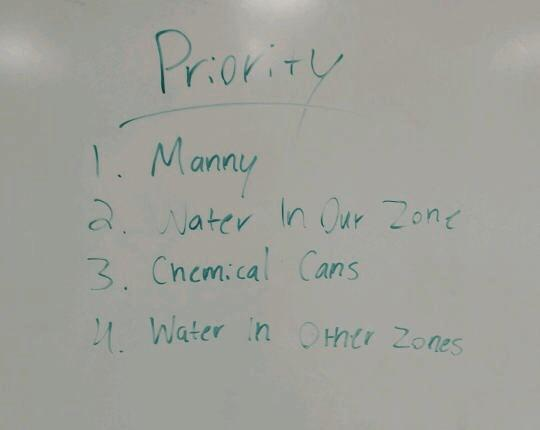 Priority
1. Manny
2. Water In Our Zone
3. Chemical Cans
4. Water in Other Zones